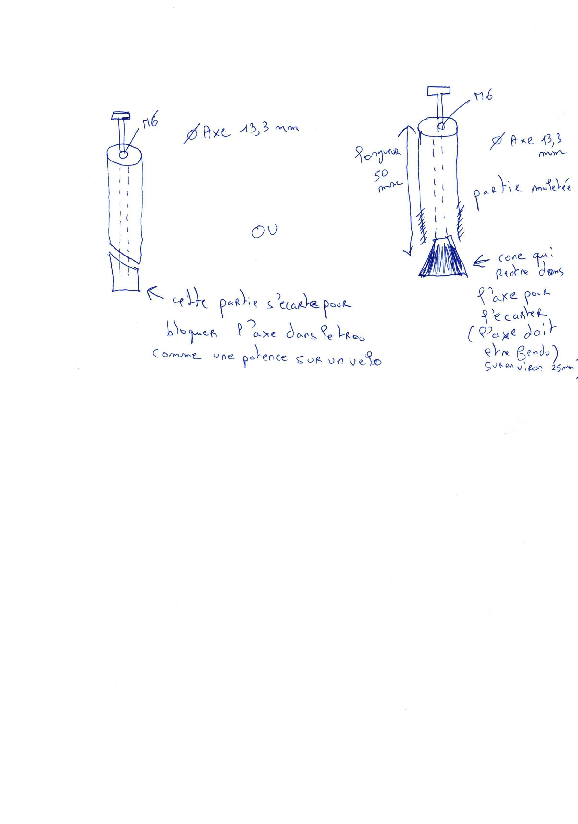 M6
Ø Axe 13,3 mm
OU
cette partie s'écarte pour
bloquer l'axe dans le trou
comme une potence sur un velo
M6
longueur
50
mm
Ø Axe 13,3
mm
partie moletée
cone qui
rentre dans
l'axe pour
l'écarter
(l'axe doit
etre fendu)
sur environ 25mm